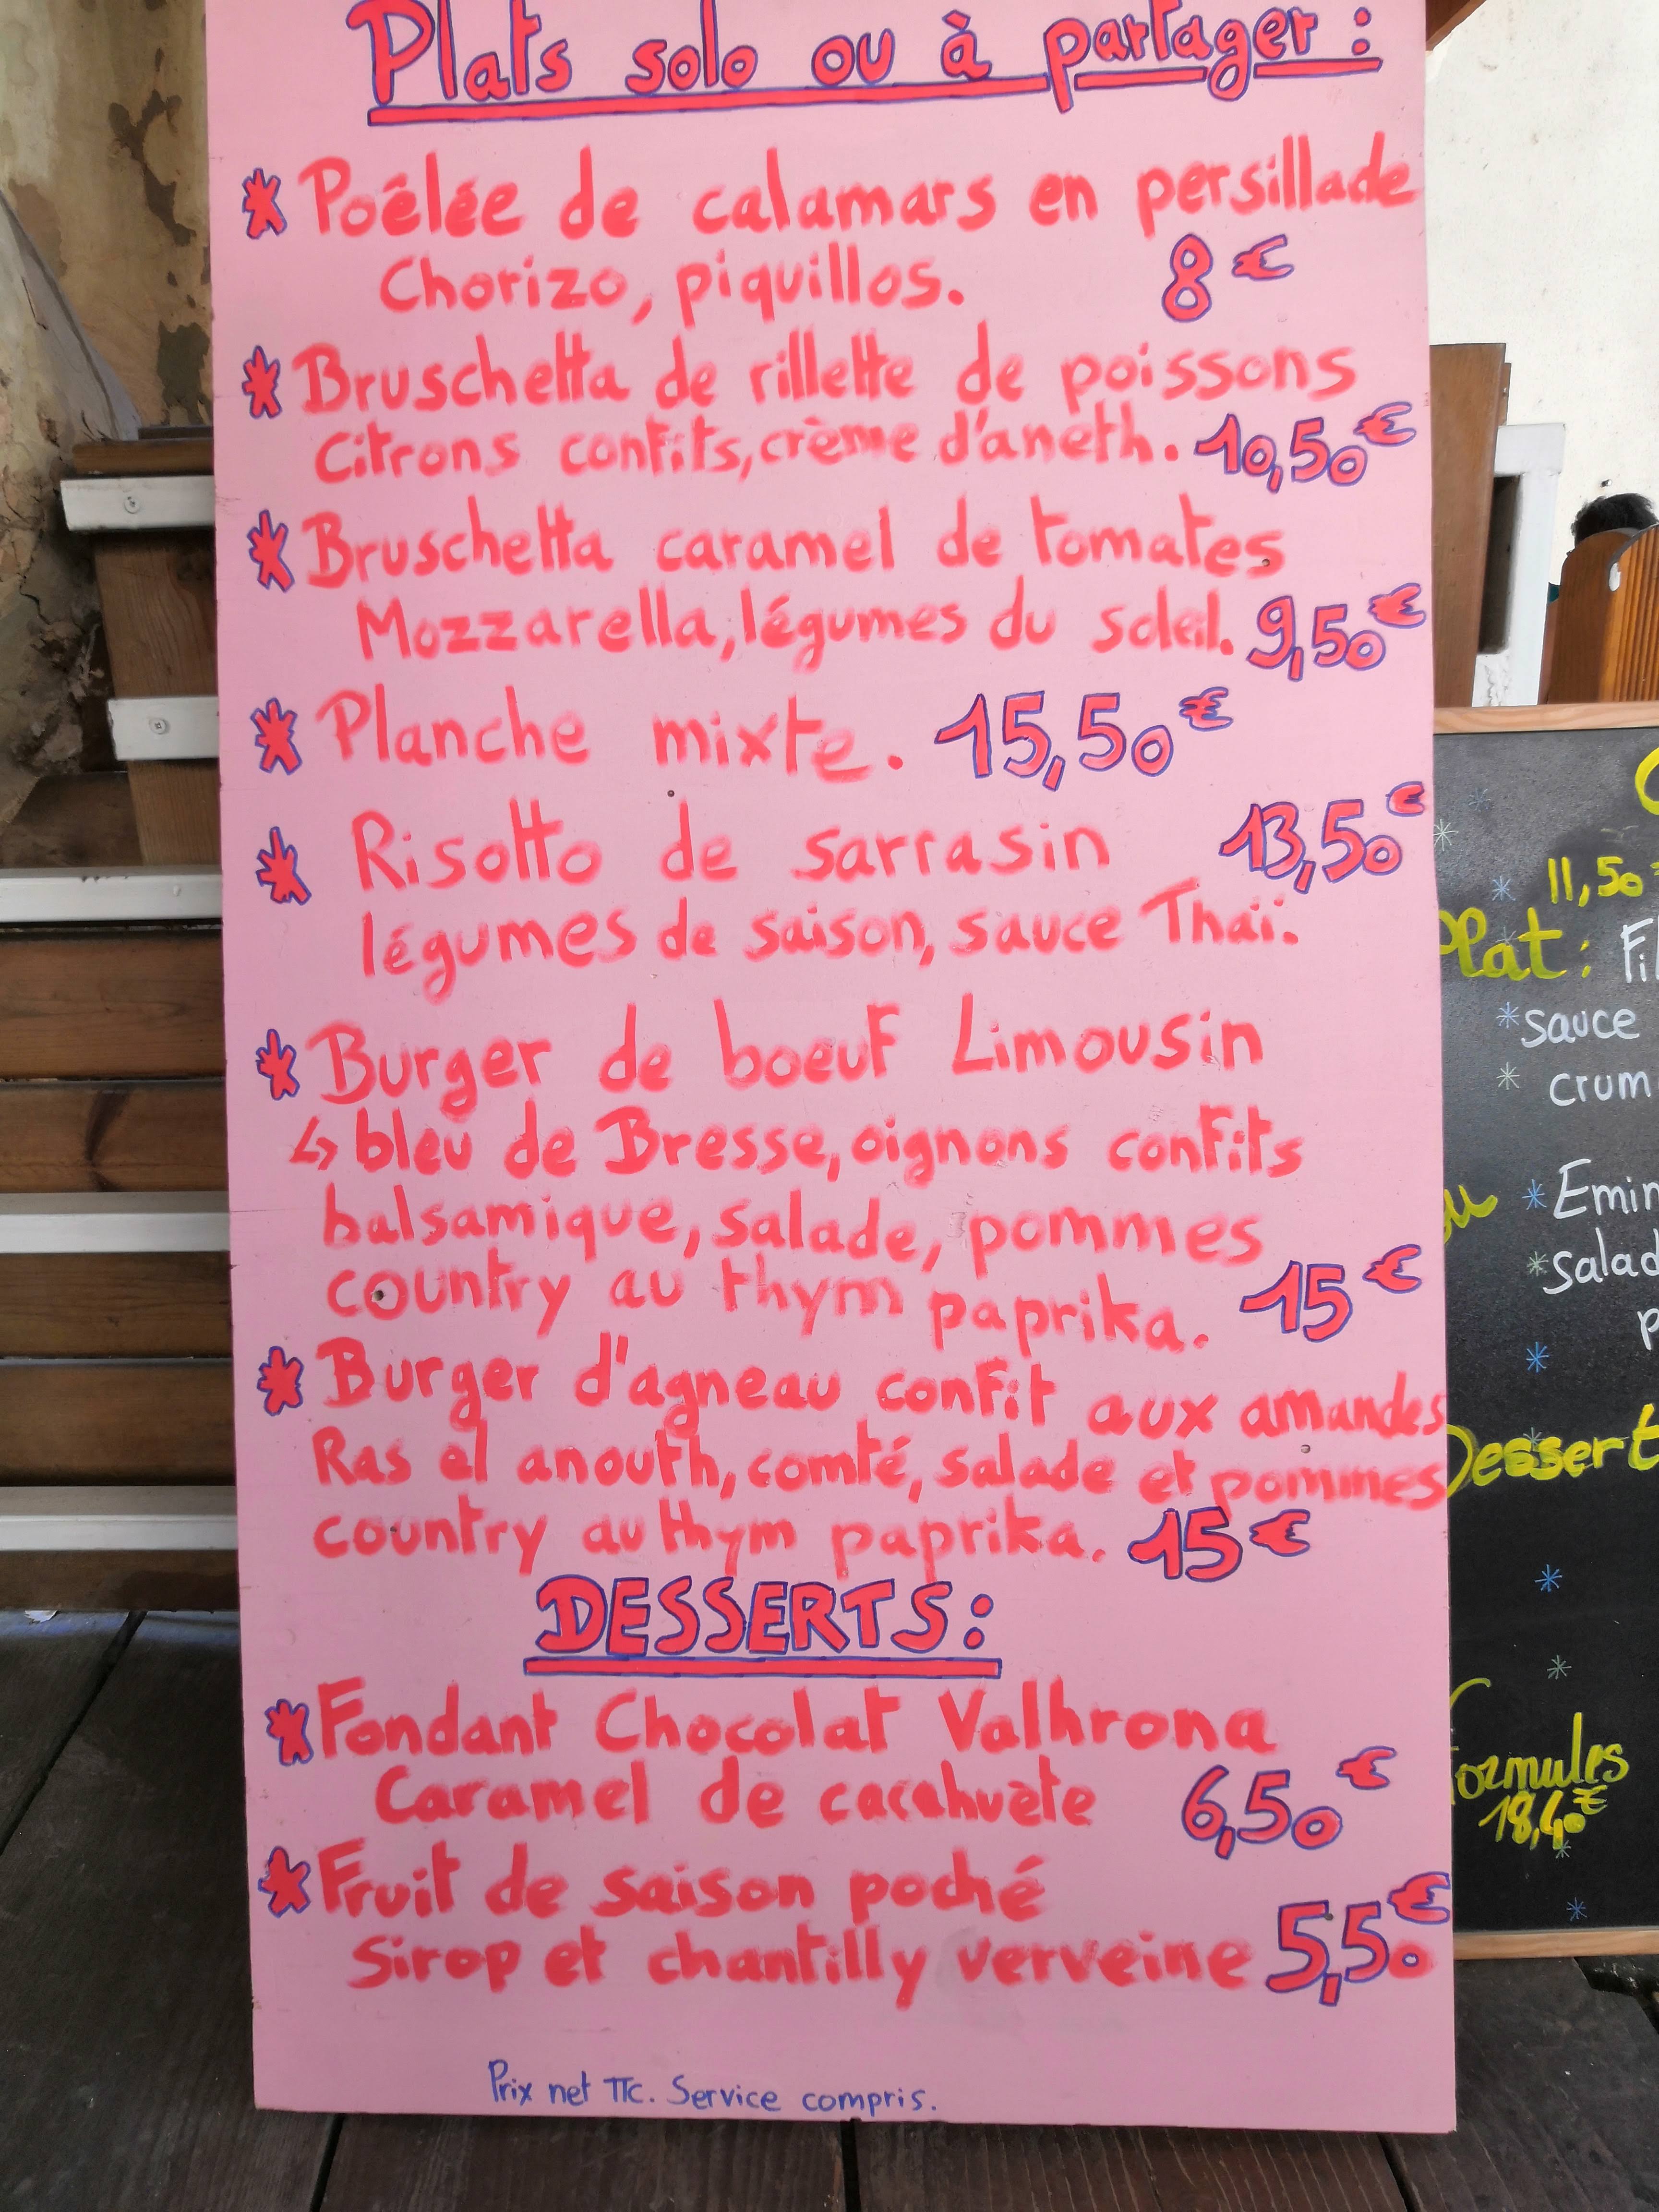 Plats solo ou à partager :
* Poêlée de calamars en persillade
Chorizo, piquillos. 8 €
* Bruschetta de rillette de poissons
Citrons confits, crème d'aneth. 10,50 €
* Bruschetta caramel de tomates
Mozzarella, légumes du soleil. 9,50 €
* Planche mixte. 15,50 €
* Risotto de sarrasin 13,50 €
légumes de saison, sauce Thaï.
* Burger de boeuf Limousin
↳ bleu de Bresse, oignons confits
balsamique, salade, pommes
country au thym paprika. 15 €
* Burger d'agneau confit aux amandes
Ras el anouth, comté, salade et pommes
country au thym paprika. 15 €
DESSERTS :
* Fondant Chocolat Valhrona
Caramel de cacahuète 6,50 €
* Fruit de saison poché
Sirop et chantilly verveine 5,50 €
Prix net TTC. Service compris.
11,50
Plat :
* sauce
* Dessert
Formules
18,40 €